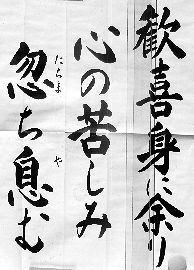 歓喜身に余り
心の苦しみ
忽ち息む
たちま
や